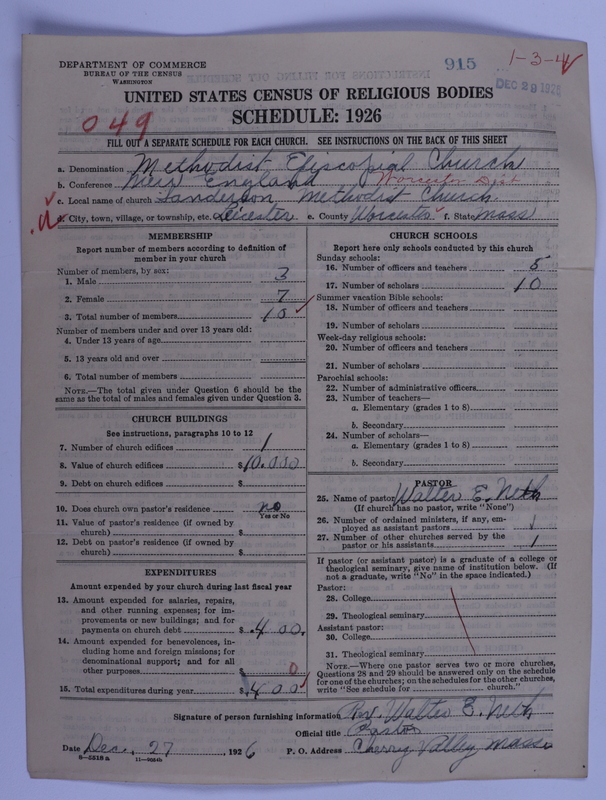 DEPARTMENT OF COMMERCE
BUREAU OF THE CENSUS
WASHINGTON
915
1-3-4
DEC 29 1926
UNITED STATES CENSUS OF RELIGIOUS BODIES
SCHEDULE: 1926
049
FILL OUT A SEPARATE SCHEDULE FOR EACH CHURCH. SEE INSTRUCTIONS ON THE BACK OF THIS SHEET
a. Denomination Methodist Episcopial Church
b. Conference New England Worcester Dist
c. Local name of church Sanderson Methodist Church.
d. City, town, village, or township, etc. Leicester e. County Worcester f. State Mass
MEMBERSHIP
Report number of members according to definition of
member in your church
Number of members, by sex:
1. Male 3
2. Female 7
3. Total number of members 10
Number of members under and over 13 years old:
4. Under 13 years of age
5. 13 years old and over
6. Total number of members
NOTE.—The total given under Question 6 should be the
same as the total of males and females given under Question 3.
CHURCH BUILDINGS
See instructions, paragraphs 10 to 12
7. Number of church edifices 1
8. Value of church edifices $10.000
9. Debt on church edifices $
10. Does church own pastor's residence no
Yes or No
11. Value of pastor's residence (if owned by
church) $
12. Debt on pastor's residence (if owned by
church) $
EXPENDITURES
Amount expended by your church during last fiscal year
13. Amount expended for salaries, repairs,
and other running expenses; for im-
provements or new buildings; and for
payments on church debt $400.
14. Amount expended for benevolences, in-
cluding home and foreign missions; for
denominational support; and for all
other purposes $ 0
15. Total expenditures during year $400
CHURCH SCHOOLS
Report here only schools conducted by this church
Sunday schools:
16. Number of officers and teachers 5
17. Number of scholars 10
Summer vacation Bible schools:
18. Number of officers and teachers
19. Number of scholars
Week-day religious schools:
20. Number of officers and teachers
21. Number of scholars
Parochial schools:
22. Number of administrative officers
23. Number of teachers—
a. Elementary (grades 1 to 8)
b. Secondary
24. Number of scholars—
a. Elementary (grades 1 to 8)
b. Secondary
PASTOR
25. Name of pastor Walter E. Neth
(If church has no pastor, write "None")
26. Number of ordained ministers, if any, em-
ployed as assistant pastors
27. Number of other churches served by the
pastor or his assistants 1
If pastor (or assistant pastor) is a graduate of a college or
theological seminary, give name of institution below. (If
not a graduate, write "No" in the space indicated.)
Pastor:
28. College
29. Theological seminary
Assistant pastor:
30. College
31. Theological seminary
NOTE.—Where one pastor serves two or more churches,
Questions 28 and 29 should be answered only on the schedule
for one of the churches; on the schedules for the other churches,
write "See schedule for church."
Signature of person furnishing information Rev. Walter E. Neth
Official title Pastor
Date Dec. 27, 1926 P. O. Address Cherry Valley Mass